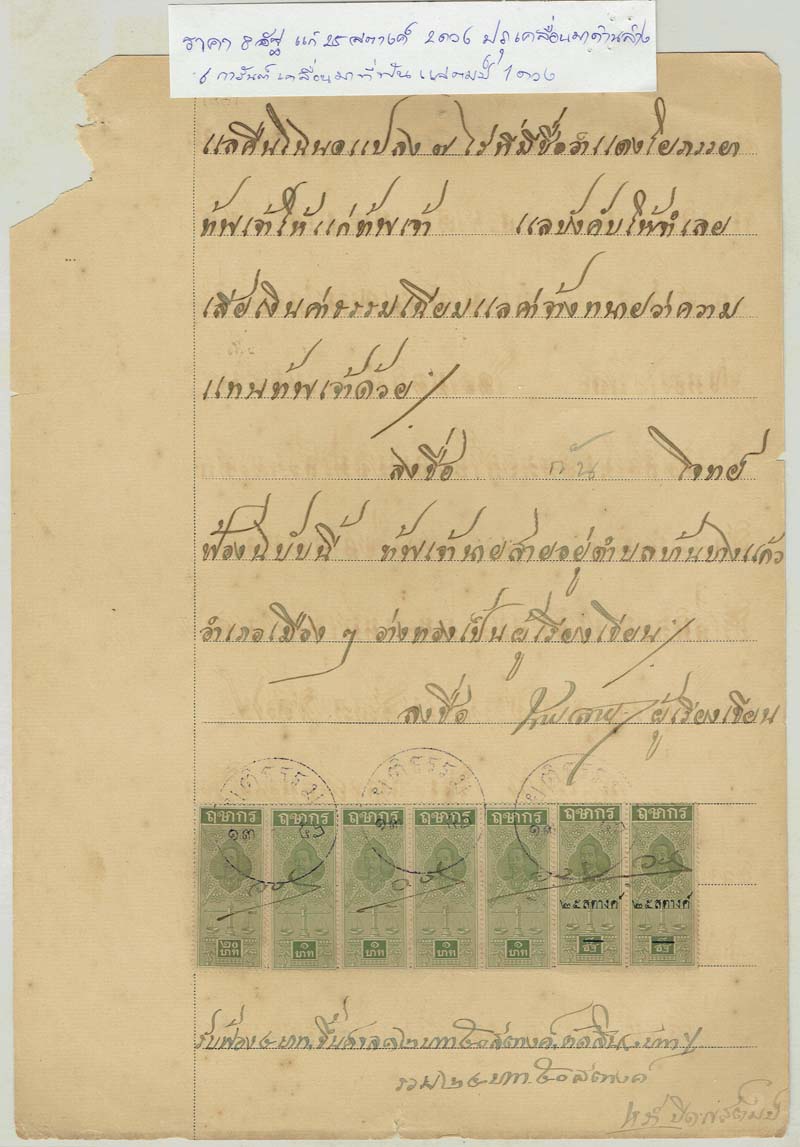 ราคา 8 อัฐ แก้ ๒๕ สตางค์ 2 ดวง ปรุเคลื่อนมาด้านล่าง
การันต์ เคลื่อนมาที่ฟัน แสตมป์ 1 ดวง
แลคืนไร่นอแปลง ๗ ไร่ที่มีชื่อว่าแดงใยภรรยา
ข้าพเจ้าให้แก่ข้าพเจ้า แลบังคับให้จำเลย
เสียเงินค่าธรรมเนียมแลค่าจ้างทนายว่าความ
แทนข้าพเจ้าด้วย
ลงชื่อ กัน โจทย์
ฟ้องฉบับนี้ ข้าพเจ้านายสายอยู่ตำบลบ้านบางแก้ว
อำเภอเมือง ๆ อ่างทองเป็นผู้เรียงเขียน
ลงชื่อ นายสาย ผู้เรียงเขียน
ยุติธรรม ยุติธรรม
ฤชากร ฤชากร ฤชากร ฤชากร ฤชากร ฤชากร ฤชากร
๑๓ ๑๓ ๑๓
๒๕ สตางค์ ๒๕ สตางค์
๒๐ บาท ๑ บาท ๑ บาท ๑ บาท ๑ บาท
รวม ๒๔ บาท ๕๐ สตางค์